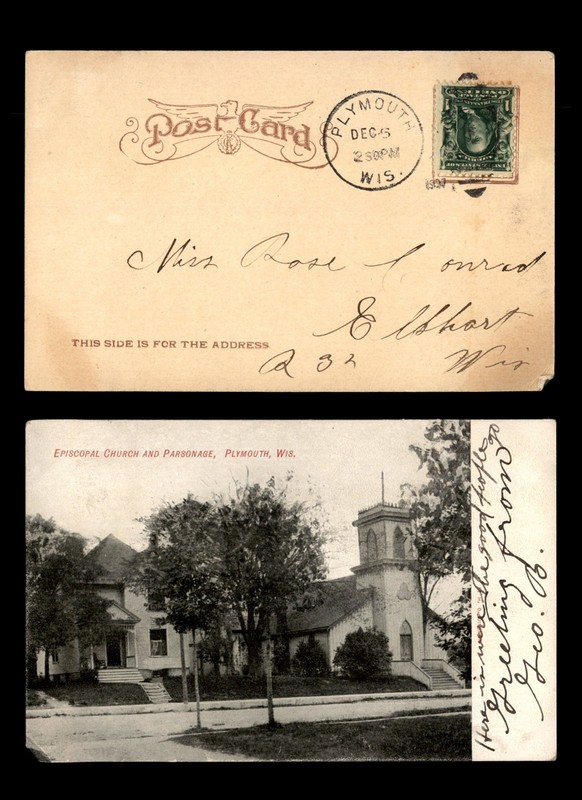 Post Card
PLYMOUTH
DEC 6
2 30 PM
WIS.
1907
1
Miss Rose Conrad
Elkhart
R 32 Wis
THIS SIDE IS FOR THE ADDRESS
EPISCOPAL CHURCH AND PARSONAGE, PLYMOUTH, WIS.
Here is were the good people go
Greeting from
Geo.